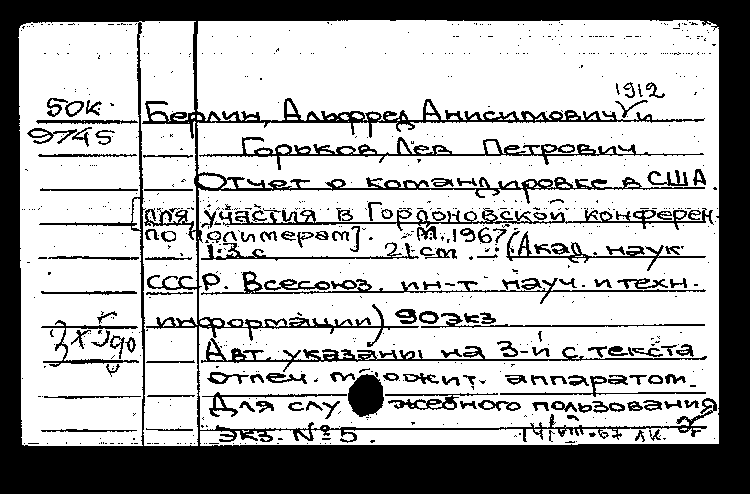 1912
50к. Берлин, Альфред Анисимович и
9745
Горьков, Лев Петрович.
Отчет о командировке в США.
[для участия в Гордоновской конферен.
по полимерам]. М., 1967.
13 с. 21 cm. (Акад. наук
СССР. Всесоюз. ин-т науч. и техн.
информации) 90 экз.
Авт. указаны на 3-й с. текста.
отпеч. множит. аппаратом.
Для служебного пользования
экз. № 5. 14/VIII-67 лк.